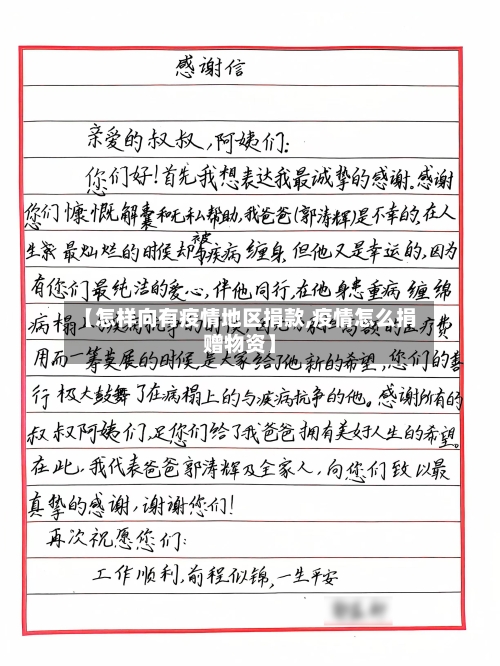 感谢信
亲爱的叔叔,阿姨们:
您们好!首先我想表达我最诚挚的感谢。感谢
您们慷慨解囊和无私帮助,我爸爸(郭涛辉)是不幸的,在人
生最灿烂的时候却被疾病缠身,但他又是幸运的,因为
有您们最纯洁的爱心,伴他同行,在他身患重病缠绵
病榻
【怎样向有疫情地区捐款,疫情怎么捐
赠物资】
的医疗费
用而一筹莫展的时候,是大家给了他新的希望,您们的善
行极大鼓舞了在病榻上的与疾病抗争的他。感谢所有的
叔叔阿姨们,是您们给了我爸爸拥有美好人生的希望。
在此,我代表爸爸郭涛辉及全家人,向您们致以最
真挚的感谢,谢谢您们!
再次祝愿您们:
工作顺利,前程似锦,一生平安